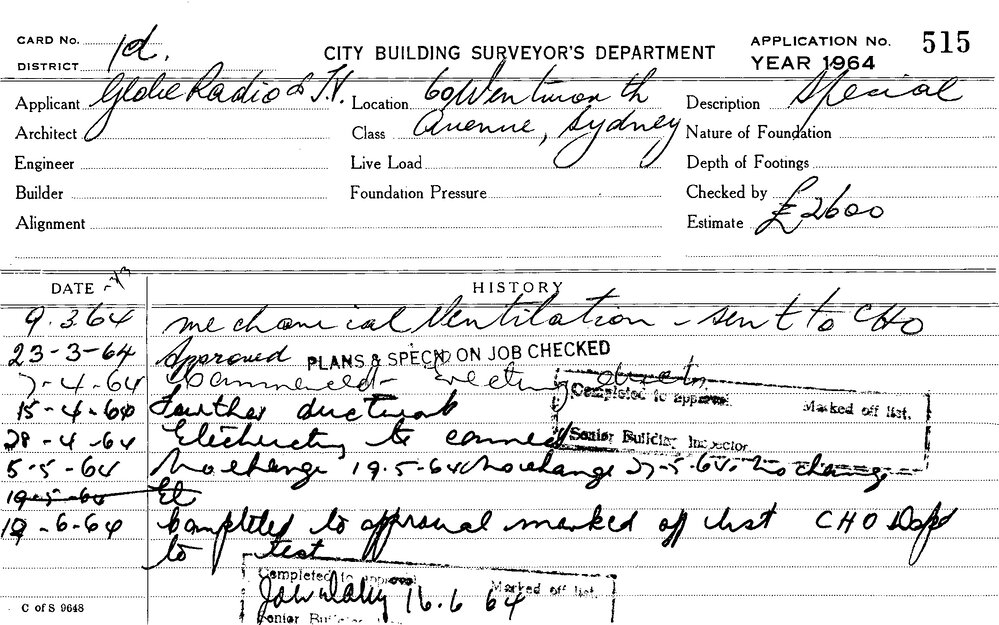 CARD No. 1d. CITY BUILDING SURVEYOR'S DEPARTMENT APPLICATION No. 515
DISTRICT YEAR 1964
Applicant Globe Radio & T.V. Location 60 Wentworth Description Special
Architect Class Avenue, Sydney Nature of Foundation
Engineer Live Load Depth of Footings
Builder Foundation Pressure Checked by
Alignment Estimate £2600
DATE HISTORY
9.3.64 mechanical Ventilation - sent to CHO
23-3-64 Approved PLANS & SPECN ON JOB CHECKED
7-4-64 Commenced - Erecting ducts
Completed to approval. Marked off list.
15-4-64 Further ductwork
28-4-64 to connect
Senior Building Inspector
5-5-64 No change 19.5-64 No change 27-5-64. No change
19-5-64 El
12-6-64 Completed to approval marked off list CHO Dept
to test
Completed to approval Marked off list.
16.6 64
Senior Building
C of S 9648